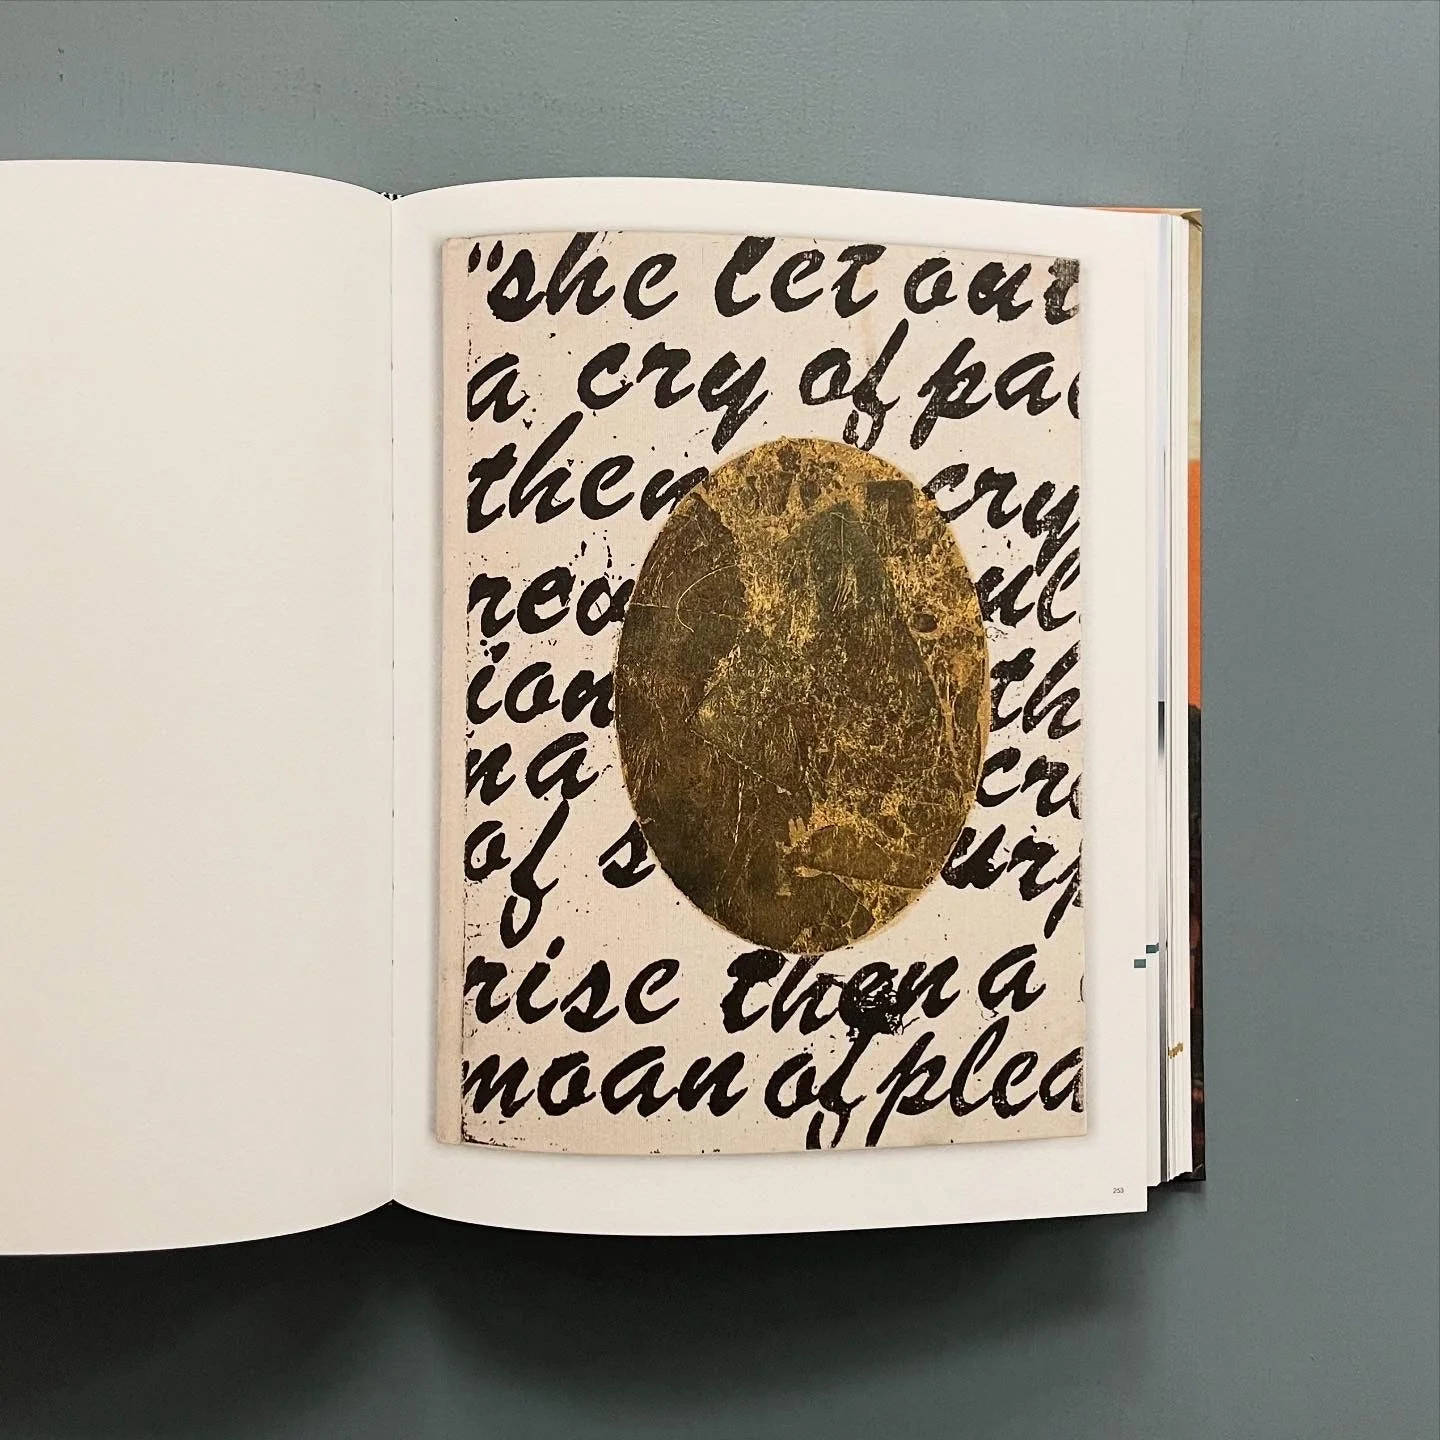 "she let out
a cry of pa
then cry
rea ul
ion th
na cr
of s urp
rise then a
moan of plea
253